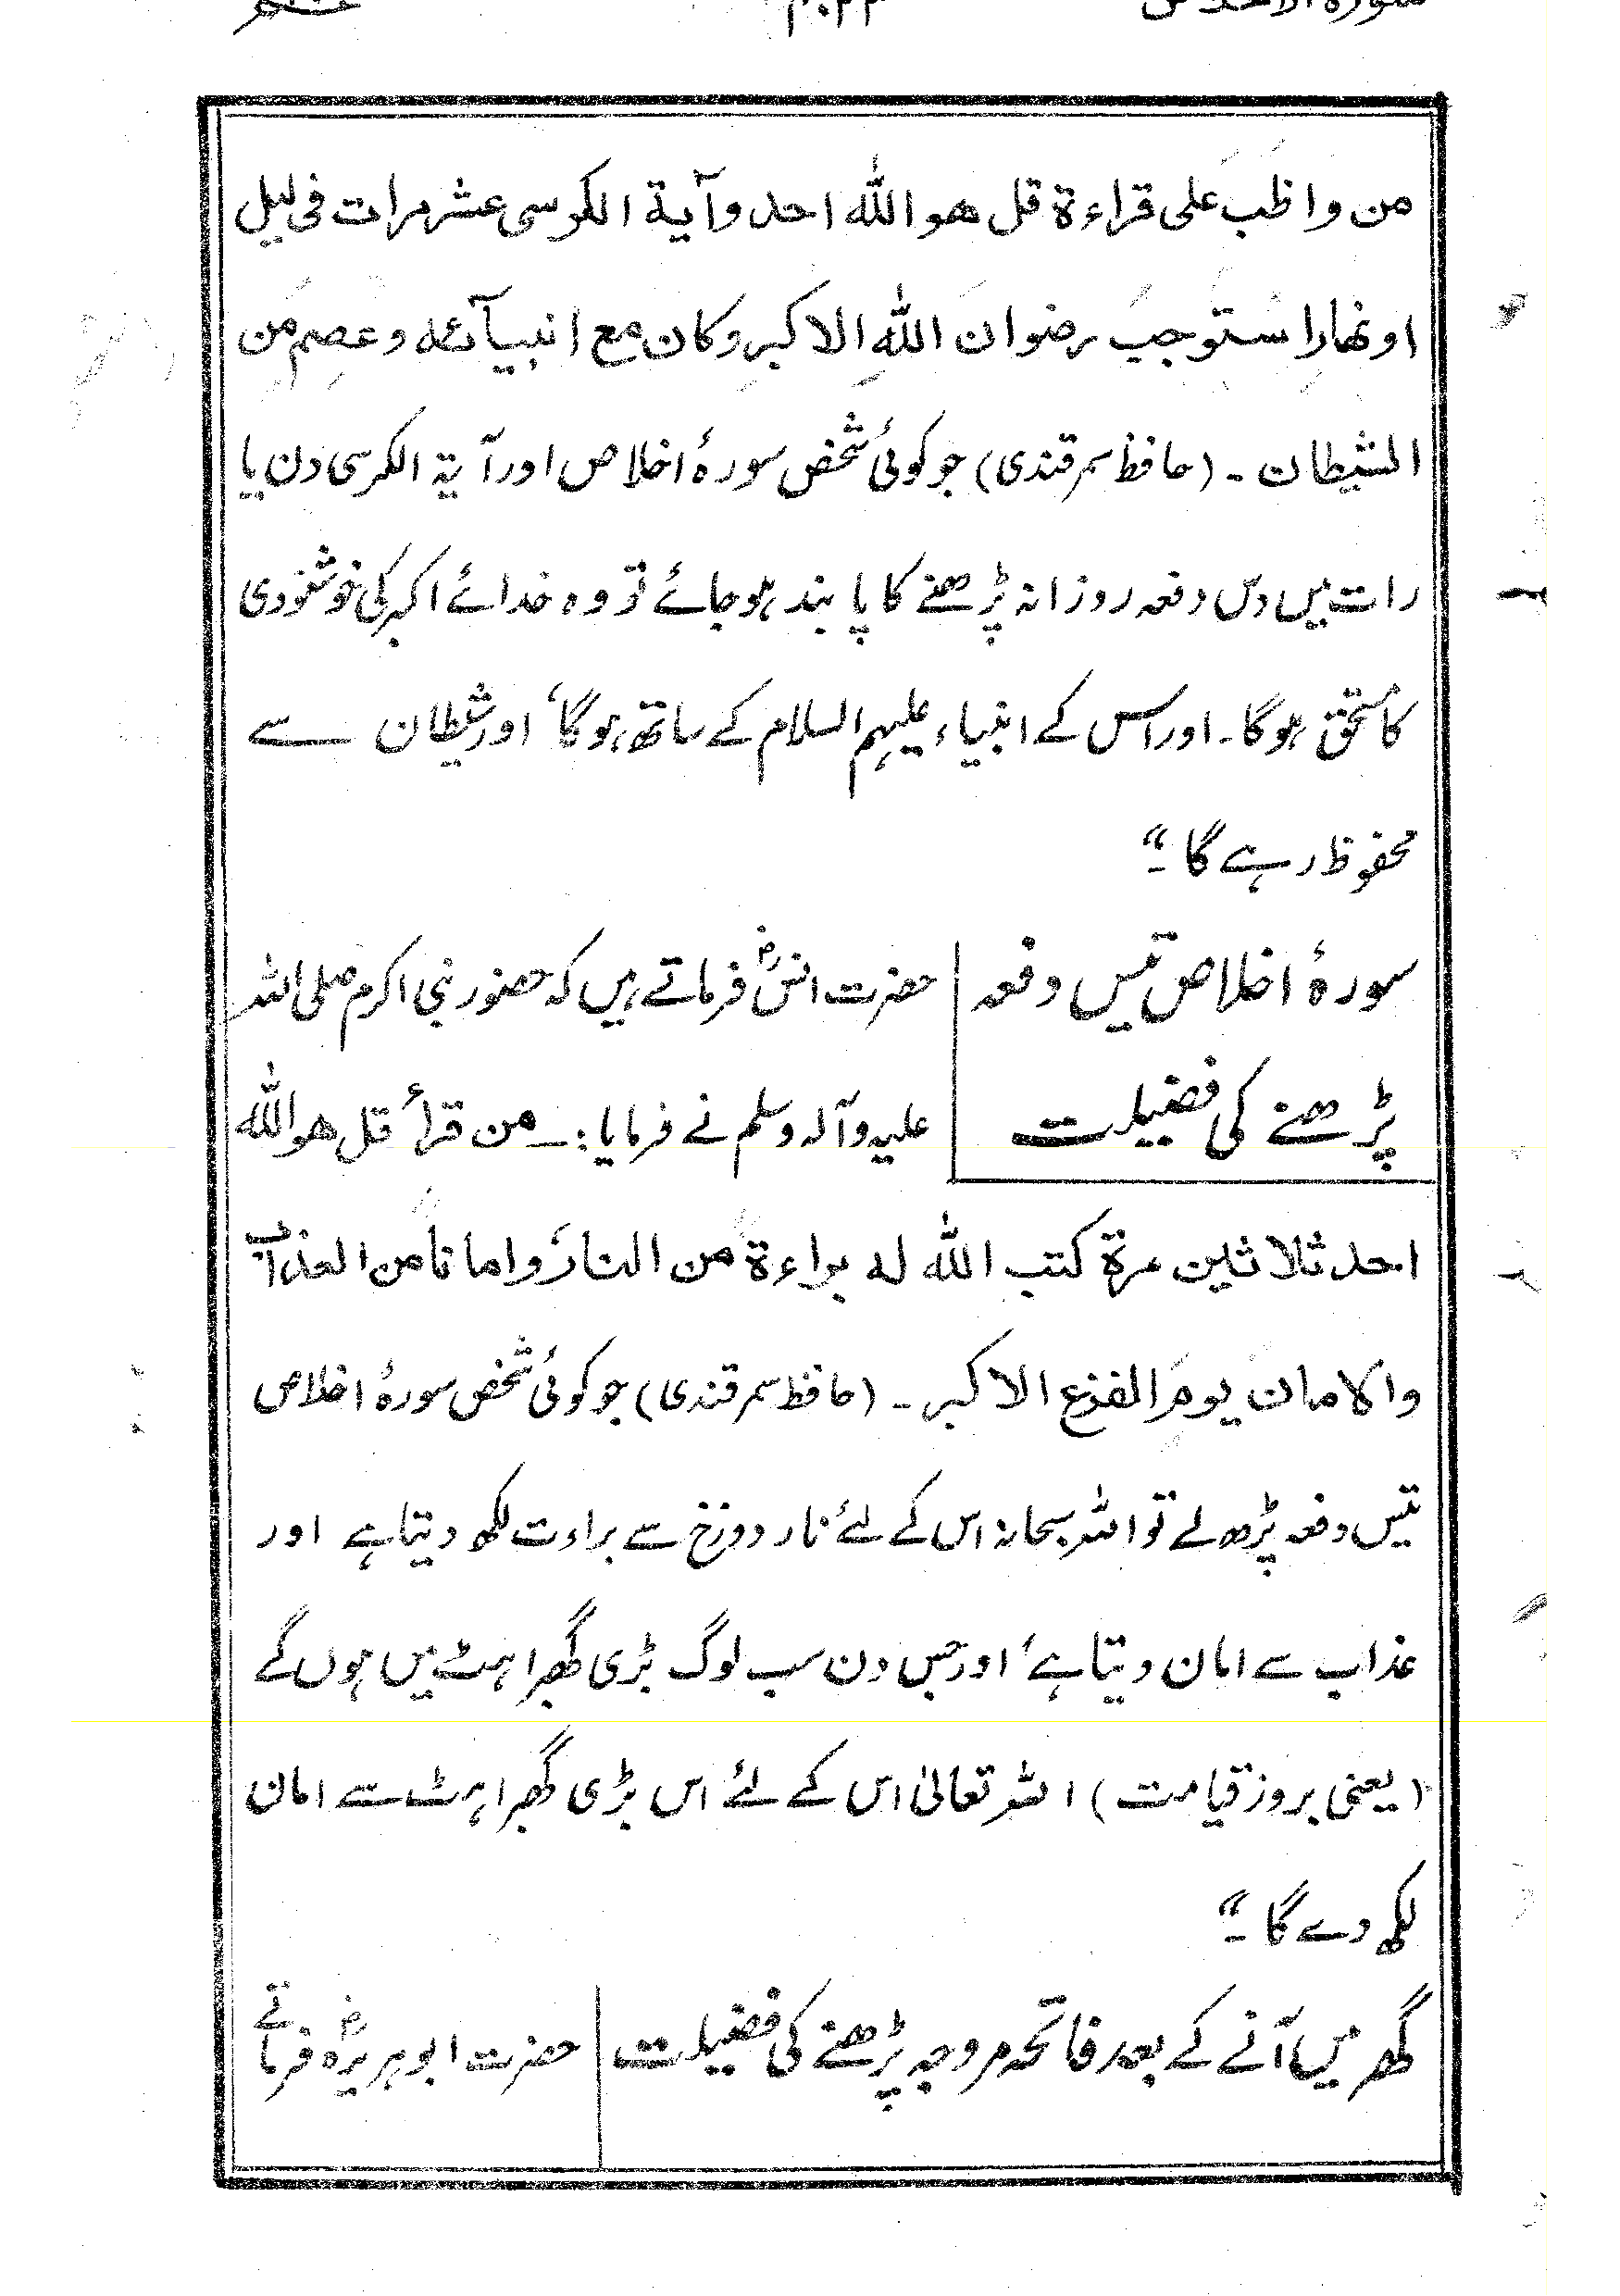 سورة الاخلاص
من واظب على قراءة قل هو الله احد وآية الكرسى عشر مرات فى ليل
او نهار استوجب رضوان اللهِ الاكبر وكان مع انبيآئه وعصم من
الشيطان ـ (حافظ سمرقندی) جو کوئی شخص سورۂ اخلاص اور آیۃ الکرسی دن یا
رات میں دس دفعہ روزانہ پڑھنے کا پابند ہو جائے تو وہ خدائے اکبر کی خوشنودی
کا مستحق ہوگا۔ اور اس کے انبیاء علیہم السلام کے ساتھ ہوگا، اور شیطان سے
محفوظ رہے گا۔“
سورۂ اخلاص تیس دفعہ
پڑھنے کی فضیلت
حضرت انسؓ فرماتے ہیں کہ حضور نبی اکرم صلی اللہ
علیہ وآلہ وسلم نے فرمایا:ـ من قرأ قل هو الله
احد ثلاثين مرة كتب الله له براءة من النار وامانا من العذاب
والامان يوم الفزع الاكبر ـ (حافظ سمرقندی) جو کوئی شخص سورۂ اخلاص
تیس دفعہ پڑھ لے تو اللہ سبحانہ اس کے لئے نار دوزخ سے براءت لکھ دیتا ہے اور
عذاب سے امان دیتا ہے، اور جس دن سب لوگ بڑی گھبراہٹ میں ہوں گے
(یعنی بروز قیامت) اللہ تعالیٰ اس کے لئے اس بڑی گھبراہٹ سے امان
لکھ دے گا۔“
گھر میں آنے کے بعد فاتحہ مروجہ پڑھنے کی فضیلت
حضرت ابوہریرہؓ فرماتے